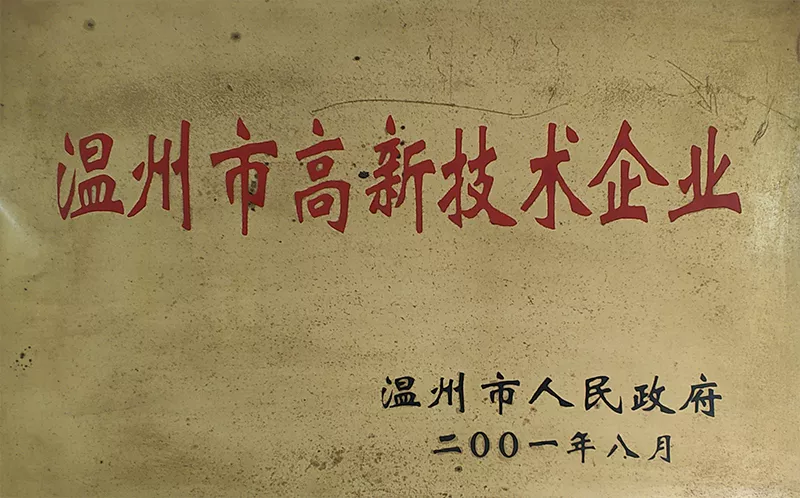 温州市高新技术企业
温州市人民政府
二00一年八月